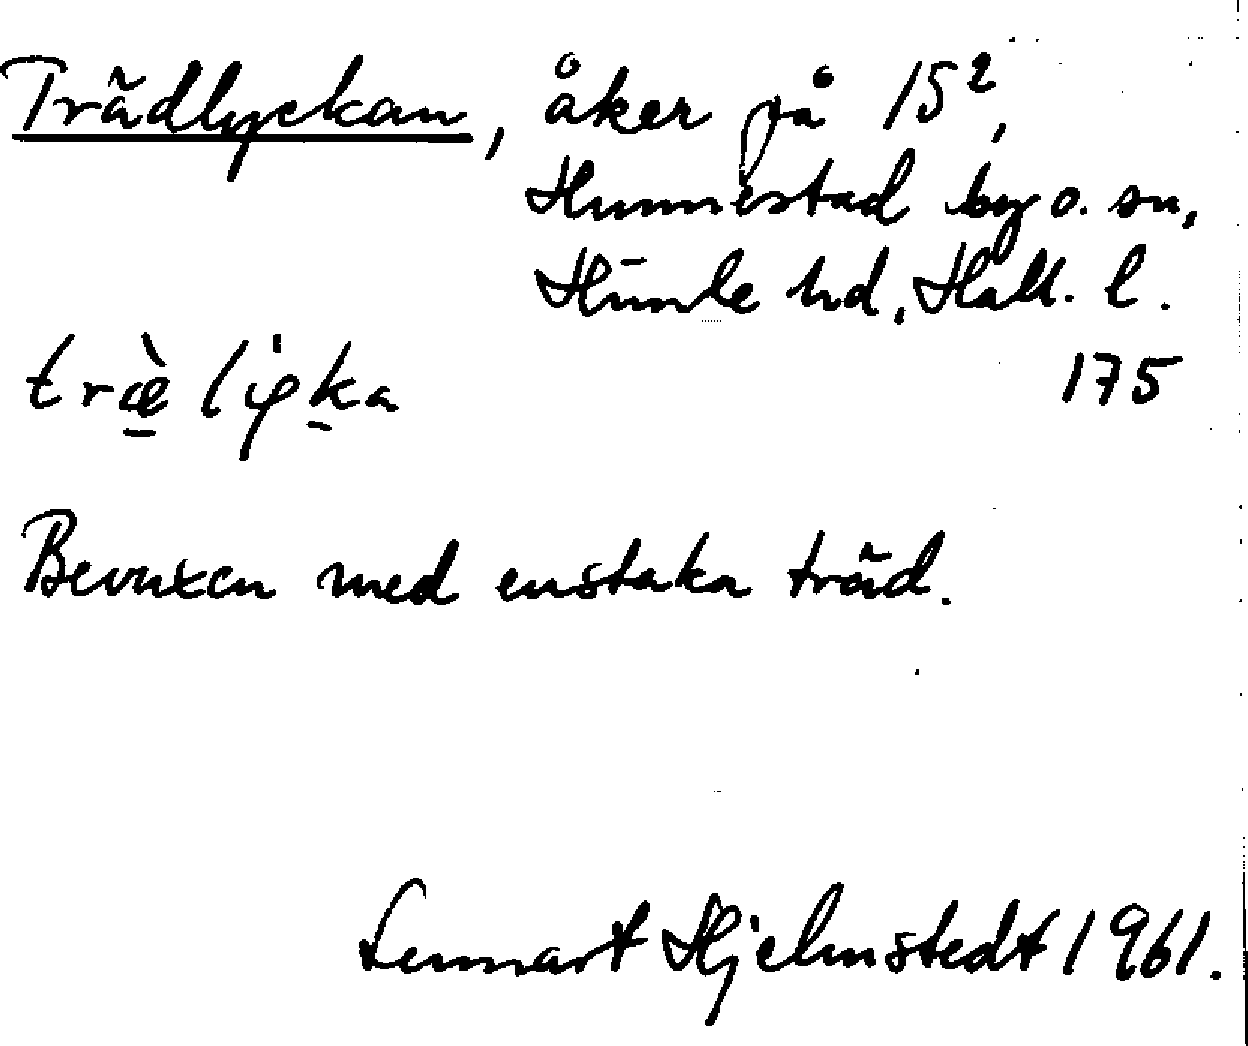 Trädlyckan, åker på 15²,
Hunnestad by o. sn,
Himle hd, Hall. l.
175
Bevuxen med enstaka träd.
Lennart Hjelmstedt 1961.